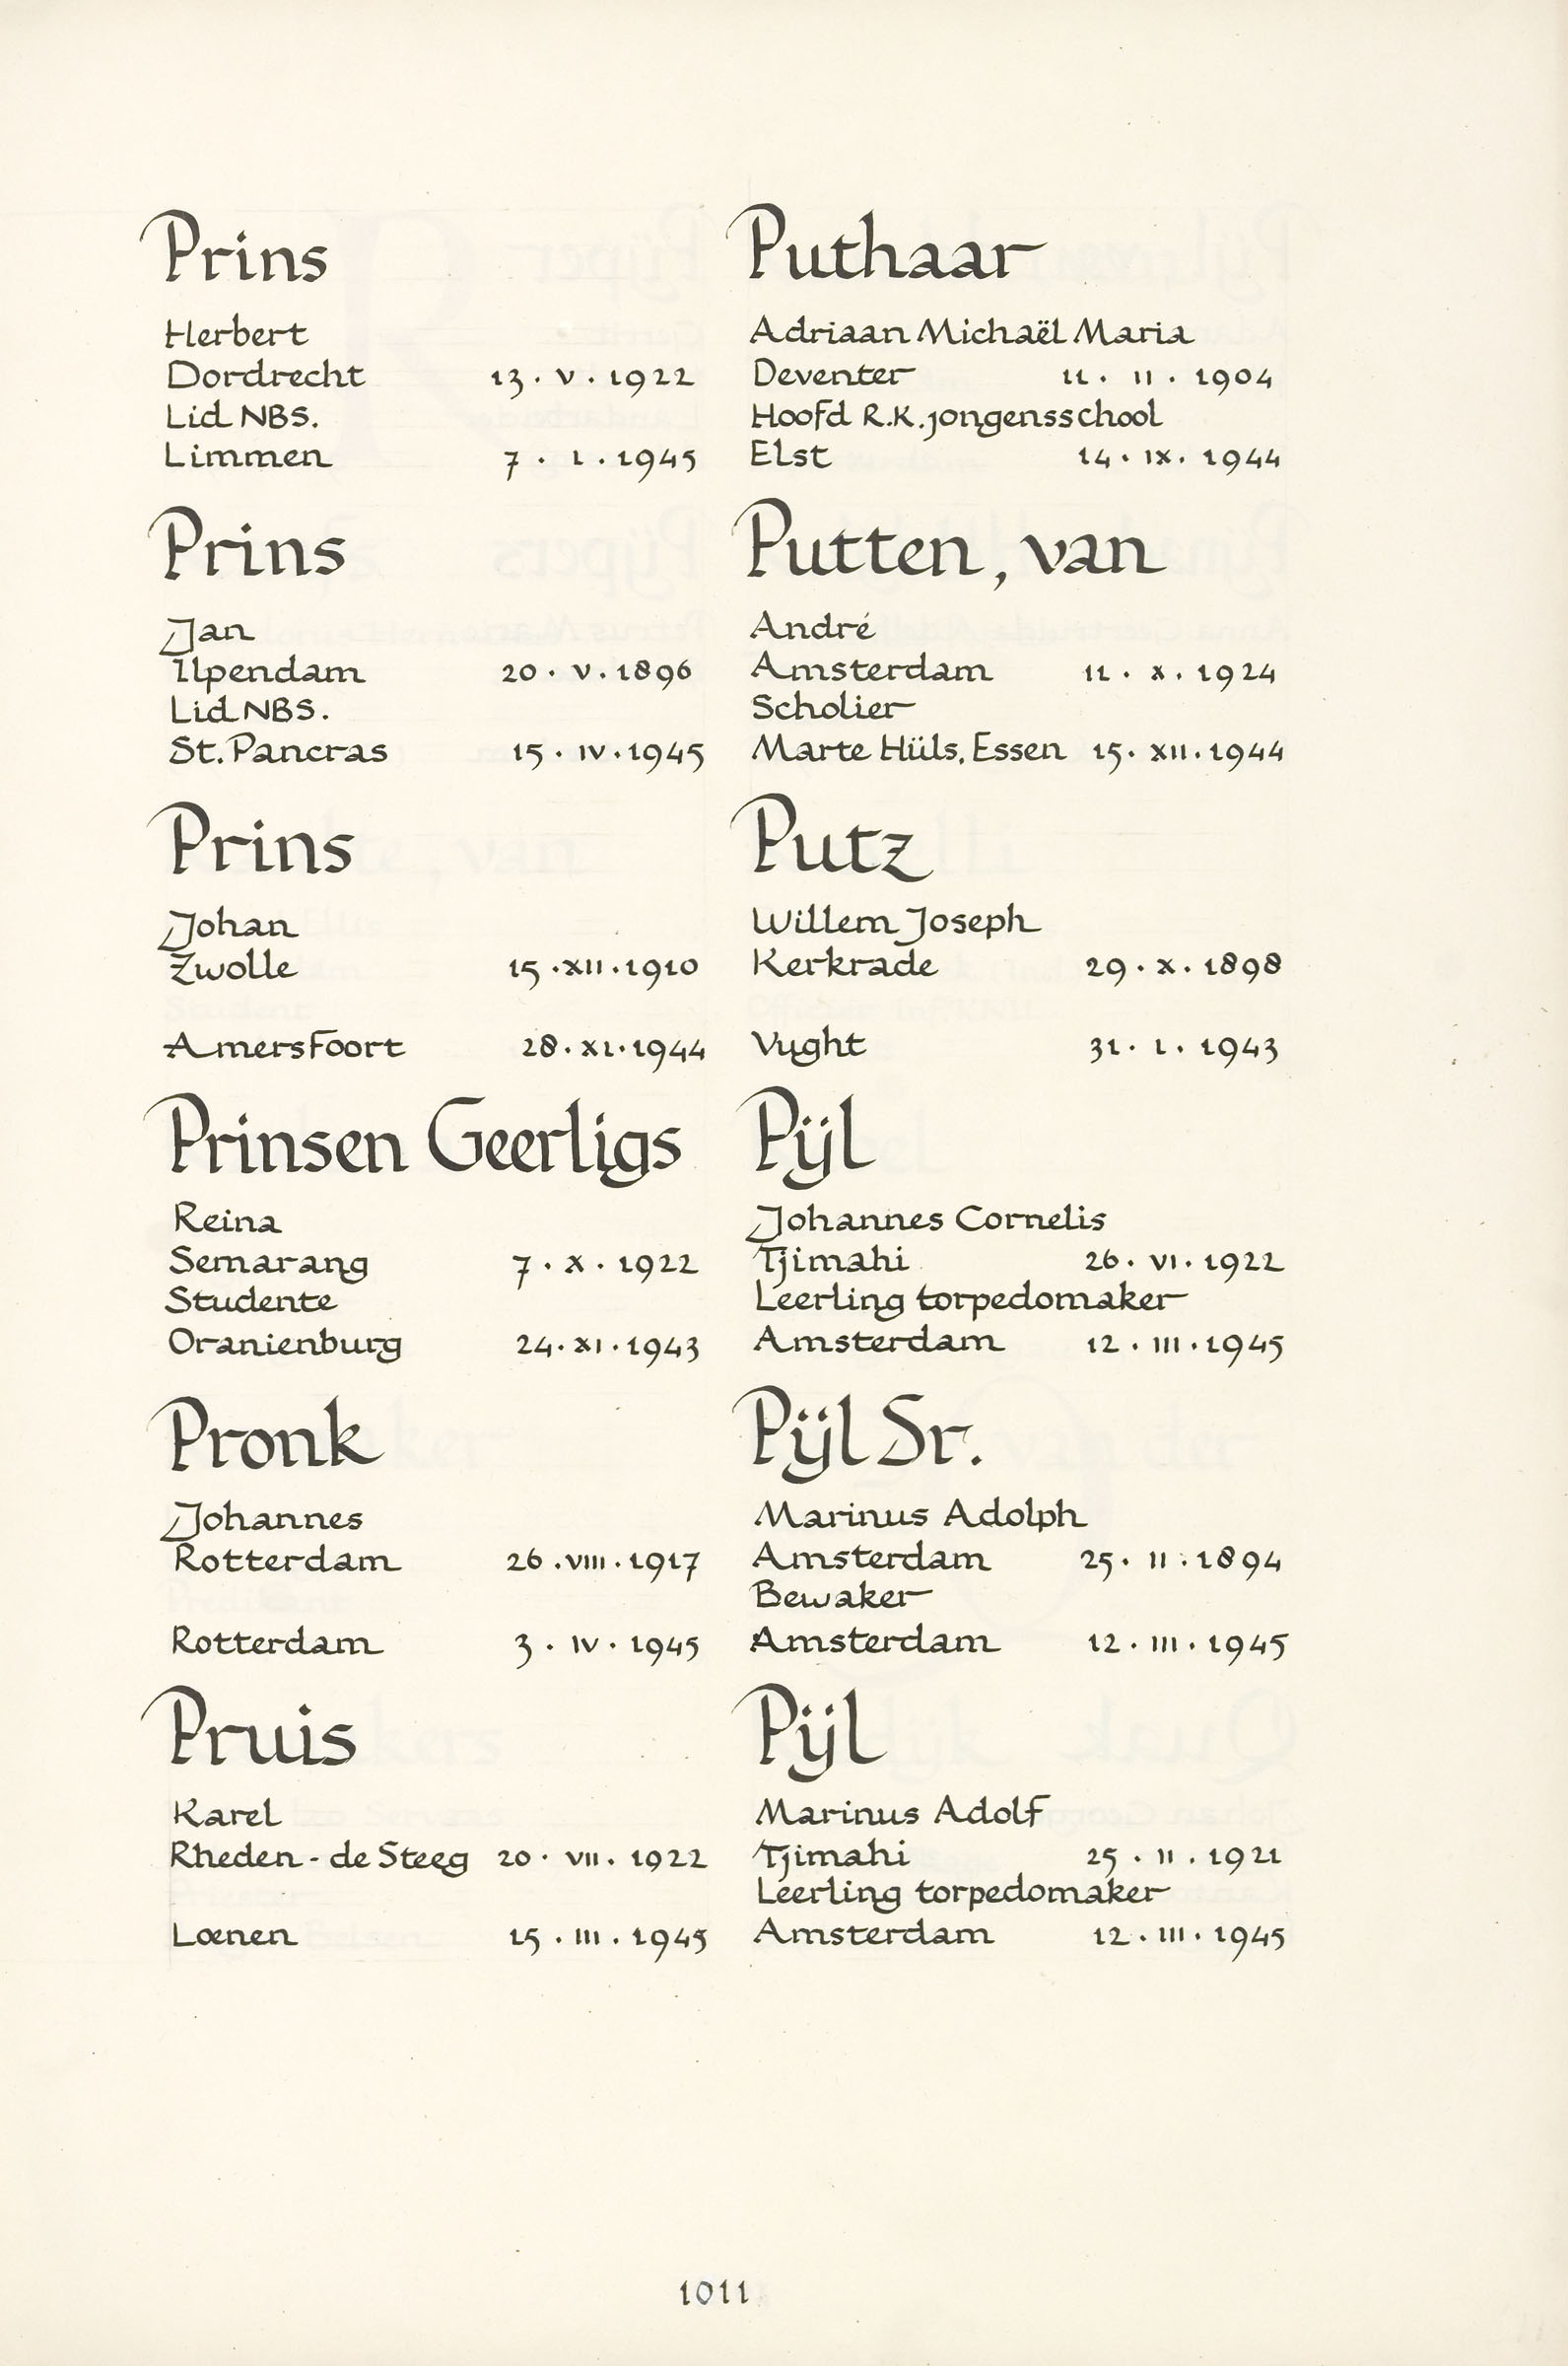 Prins
Herbert
Dordrecht 13 . V . 1922
Lid NBS.
Limmen 7 . I . 1945
Prins
Jan
Ilpendam 20 . V . 1896
Lid NBS.
St. Pancras 15 . IV . 1945
Prins
Johan
Zwolle 15 . XII . 1910
Amersfoort 28 . XI . 1944
Prinsen Geerligs
Reina
Semarang 7 . X . 1922
Studente
Oranienburg 24 . XI . 1943
Pronk
Johannes
Rotterdam 26 . VIII . 1917
Rotterdam 3 . IV . 1945
Pruis
Karel
Rheden - de Steeg 20 . VII . 1922
Loenen 15 . III . 1945
Puthaar
Adriaan Michaël Maria
Deventer 11 . II . 1904
Hoofd R.K. jongensschool
Elst 14 . IX . 1944
Putten, van
André
Amsterdam 11 . X . 1924
Scholier
Marte Hüls, Essen 15 . XII . 1944
Putz
Willem Joseph
Kerkrade 29 . X . 1898
Vught 31 . I . 1943
Pijl
Johannes Cornelis
Tjimahi 26 . VI . 1922
Leerling torpedomaker
Amsterdam 12 . III . 1945
Pijl Sr.
Marinus Adolph
Amsterdam 25 . II . 1894
Bewaker
Amsterdam 12 . III . 1945
Pijl
Marinus Adolf
Tjimahi 25 . II . 1921
Leerling torpedomaker
Amsterdam 12 . III . 1945
1011